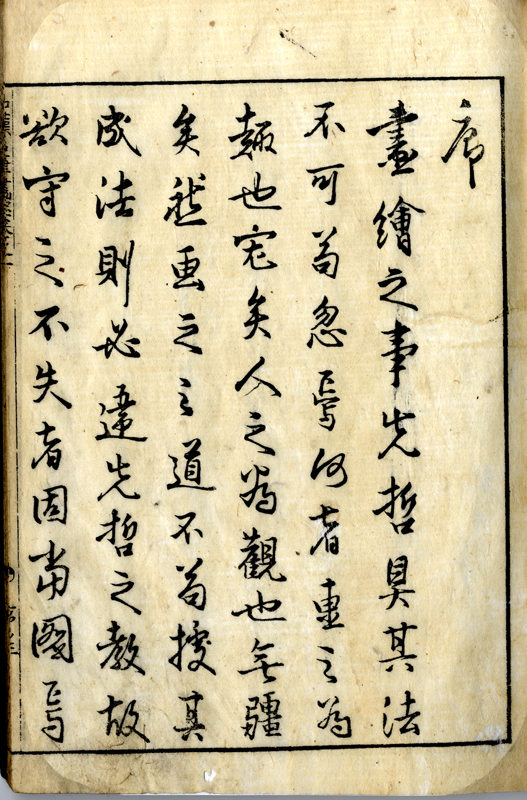 序
畫繪之事先哲具其法
不可苟忽焉何者畫之為
趣也宏矣人之為觀也無疆
矣然画之之道不苟據其
成法則必違先哲之教故
欲守之不失者固當圖焉